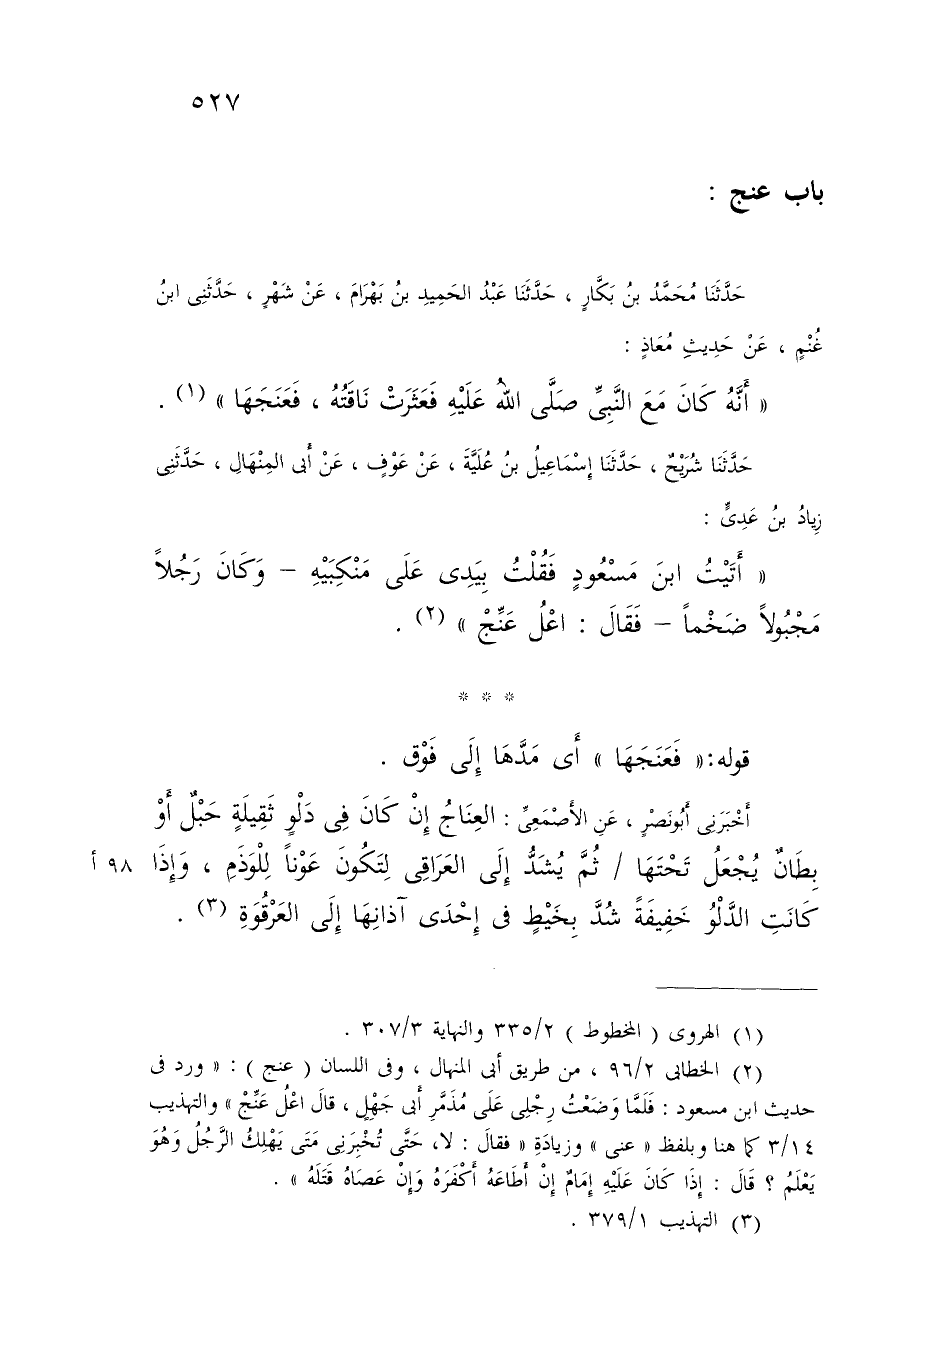 ٥٢٧
باب عنج :
حَدَّثَنَا مُحَمَّدُ بنُ بَكَّارٍ ، حَدَّثَنَا عَبْدُ الحَمِيدِ بنُ بَهْرَامَ ، عَنْ شَهْرٍ ، حَدَّثَنِى ابنُ
غُنْمٍ ، عَنْ حَدِيثِ مُعَاذٍ :
« أَنَّهُ كَانَ مَعَ النَّبِىِّ صَلَّى اللهُ عَلَيْهِ فَعَثَرَتْ نَاقَتُهُ ، فَعَنَجَهَا » (١) .
حَدَّثَنَا شُرَيْحٌ ، حَدَّثَنَا إِسْمَاعِيلُ بنُ عُلَيَّةَ ، عَنْ عَوْفٍ ، عَنْ أَبى المِنْهَالِ ، حَدَّثَنِى
زِيادُ بنُ عَدِىٍّ :
« أَتَيْتُ ابنَ مَسْعُودٍ فَقُلْتُ بِيَدِى عَلَى مَنْكِبَيْهِ – وَكَانَ رَجُلاً
مَجْبُولاً ضَخْماً – فَقَالَ : اعْلُ عَنِّجْ » (٢) .
* * *
قوله:« فَعَنَجَهَا » أَى مَدَّهَا إِلَى فَوْق .
أَخْبَرَنِى أَبُونَصْرٍ ، عَنِ الأَصْمَعِىِّ : العِنَاجُ إِنْ كَانَ فِى دَلْوٍ ثَقِيلَةٍ حَبْلٌ أَوْ
بِطَانٌ يُجْعَلُ تَحْتَهَا / ثُمَّ يُشَدُّ إِلَى العَرَاقِى لِتَكُونَ عَوْناً لِلْوَذَمِ ، وَإِذَا ٩٨ أ
كَانَتِ الدَّلْوُ خَفِيفَةً شُدَّ بِخَيْطٍ فى إِحْدَى آذانِهَا إِلَى العَرْقُوَةِ (٣) .
(١) الهروى ( المخطوط ) ٣٣٥/٢ والنهاية ٣٠٧/٣ .
(٢) الخطابى ٩٦/٢ ، من طريق أبى المنهال ، وفى اللسان ( عنج ) : « ورد فى
حديث ابن مسعود : فَلَمَّا وَضَعْتُ رِجْلِى عَلَى مُذَمَّرِ أَبى جَهْلٍ ، قالَ اعْلُ عَنِّجْ » والتهذيب
٣/١٤ كما هنا وبلفظ « عنى » وزيادَةِ « فقالَ : لا، حَتَّى تُخْبِرَنِى مَتَى يَهْلِكُ الرَّجُلُ وَهُوَ
يَعْلَمُ ؟ قَالَ : إِذَا كَانَ عَلَيْهِ إِمَامٌ إِنْ أَطَاعَهُ أَكْفَرَهُ وَإِنْ عَصَاهُ قَتَلَهُ » .
(٣) التهذيب ٣٧٩/١ .